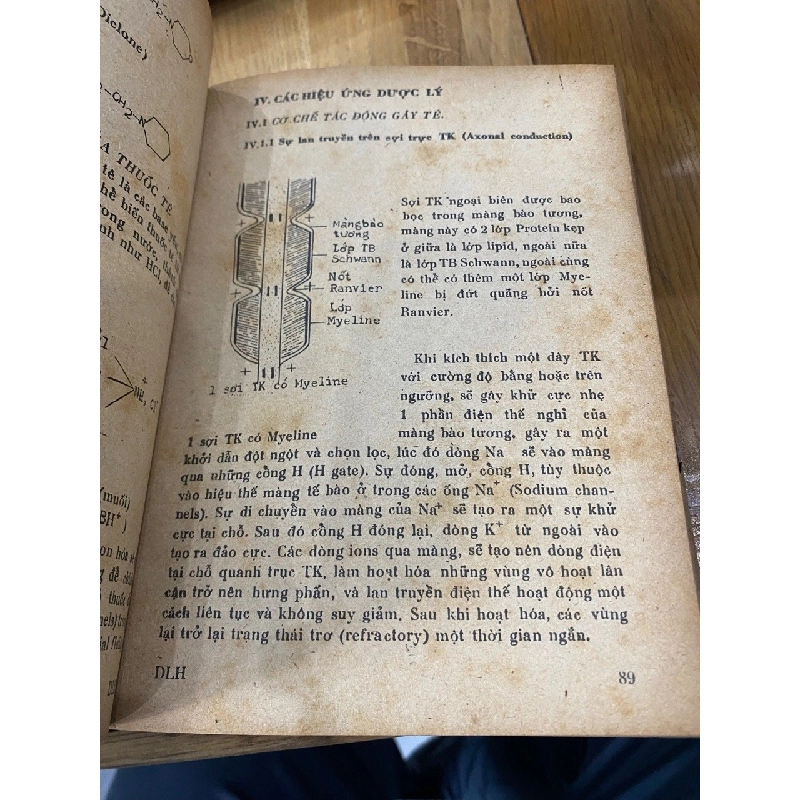 Diclone)
CH2-N
A THUỐC TÊ
tê là các base
(muối)
BH+)
IV. CÁC HIỆU ỨNG DƯỢC LÝ
IV.1 CƠ CHẾ TÁC ĐỘNG GÂY TÊ.
IV.1.1 Sự lan truyền trên sợi trục TK (Axonal conduction)
Màng bào
tương
Lớp TB
Schwann
Nốt
Ranvier
Lớp
Myeline
1 sợi TK có Myeline
Sợi TK ngoại biên được bao
bọc trong màng bào tương,
màng này có 2 lớp Protein kẹp
ở giữa là lớp lipid, ngoài nữa
là lớp TB Schwann, ngoài cùng
có thể có thêm một lớp Mye-
line bị đứt quãng bởi nốt
Ranvier.
Khi kích thích một dây TK
với cường độ bằng hoặc trên
ngưỡng, sẽ gây khử cực nhẹ
1 phần điện thế nghỉ của
màng bào tương, gây ra một
1 sợi TK có Myeline
khởi dẫn đột ngột và chọn lọc, lúc đó dòng Na sẽ vào màng
qua những cồng H (H gate). Sự đóng, mở, cồng H, tùy thuộc
vào hiệu thế màng tế bào ở trong các ống Na+ (Sodium chan-
nels). Sự di chuyển vào màng của Na+ sẽ tạo ra một sự khử
cực tại chỗ. Sau đó cồng H đóng lại, dòng K+ từ ngoài vào
tạo ra đảo cực. Các dòng ions qua màng, sẽ tạo nên dòng điện
tại chỗ quanh trục TK, làm hoạt hóa những vùng vô hoạt lân
cận trở nên hưng phấn, và lan truyền điện thế hoạt động một
cách liên tục và không suy giảm. Sau khi hoạt hóa, các vùng
lại trở lại trạng thái trơ (refractory) một thời gian ngắn.
DLH
89